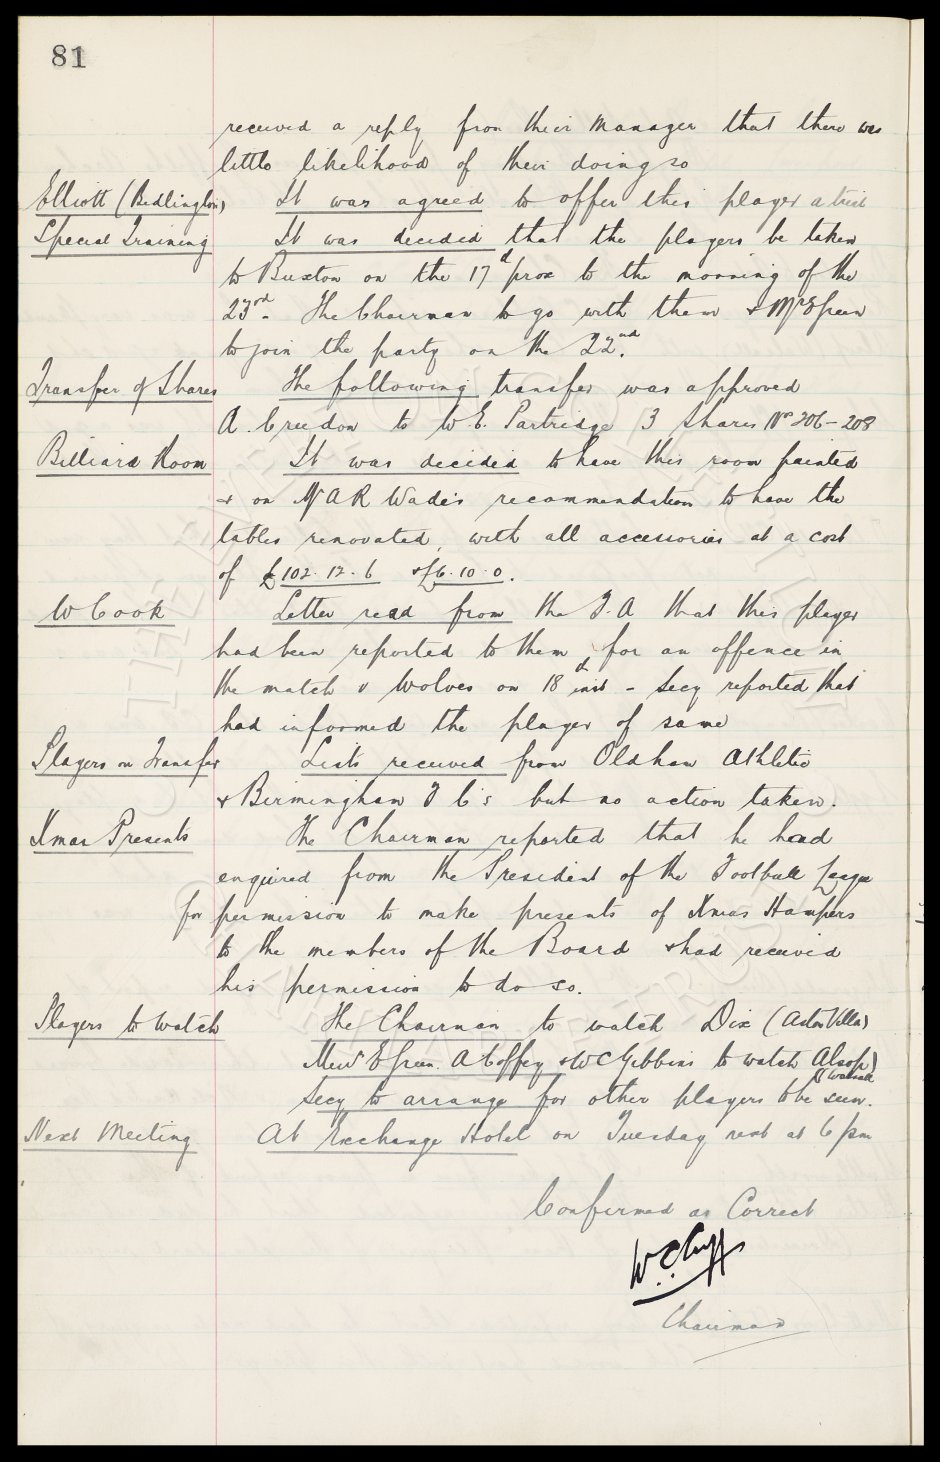 81
received a reply from their manager that there was
little likelihood of their doing so
Elliott (Bedlington) It was agreed to offer this player a trial
Special Training It was decided that the players be taken
to Buxton on the 17th prox to the morning of the
23rd. The Chairman to go with them & Mr E Green
to join the party on the 22nd.
Transfer of Shares The following transfer was approved
A. Creedon to W E. Partridge 3 Shares No 206-208
Billiard Room It was decided to have this room painted
& on Mr A R Wade's recommendation to have the
tables renovated, with all accessories at a cost
of £102.12.6 & £6.10.0.
W Cook Letter read from the F.A that this player
had been reported to them for an offence in
the match v Wolves on 18th inst - Secy reported that
had informed the player of same
Players on Transfer Lists received from Oldham Athletic
& Birmingham F C's but no action taken.
Xmas Presents The Chairman reported that he had
enquired from the President of the Football League
for permission to make presents of Xmas Hampers
to the members of the Board & had received
his permission to do so.
Players to Watch The Chairman to watch Dix (Aston Villa)
Messrs E Green. A Coffey & W C Gibbins to watch Alsop
(Walsall)
Secy to arrange for other players to be seen.
Next Meeting At Exchange Hotel on Tuesday next at 6 pm
Confirmed as Correct
W.C. Cuff
Chairman